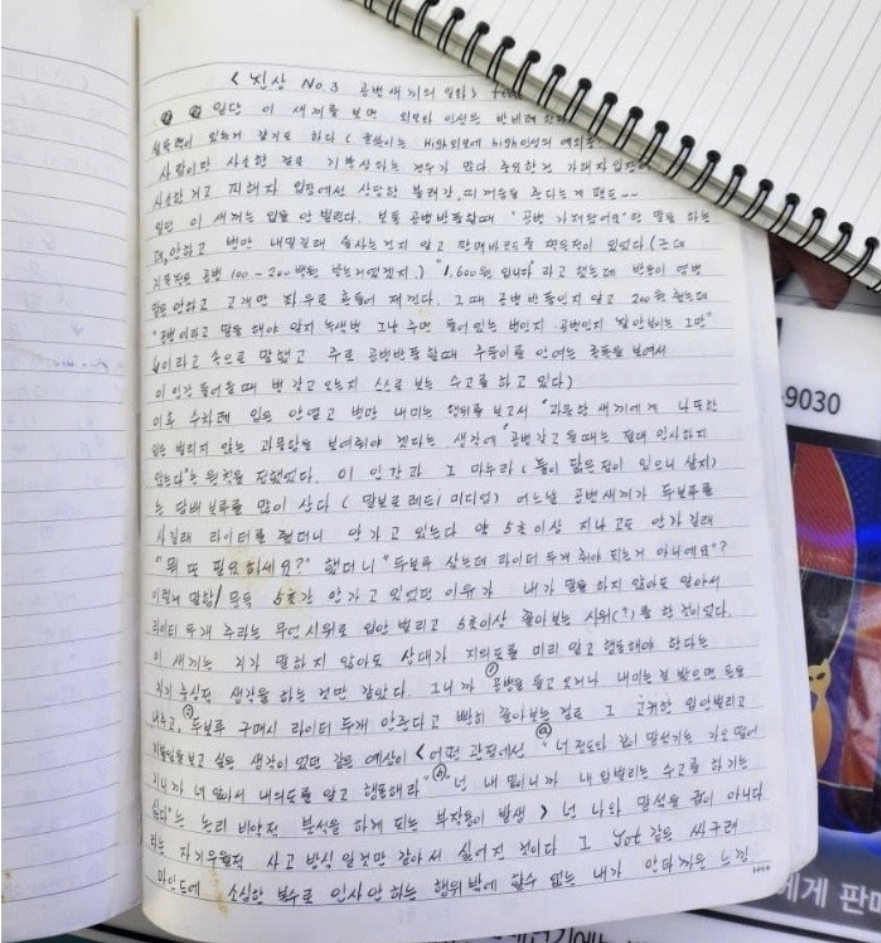 < 진상 No.3 공병새끼의 일화> feat
일단 이 새끼를 보면 외모와 인성은 반비례 한다
있는거 같기도 하다 ( 글쓴이는 High외모에 high인성의 예외
사람이란 사소한 걸로 기분상하는 경우가 많다 중요한건 가해자입장
사소한거고 피해자 입장에선 상당한 불쾌감, 띠꺼움을 준다는게 팩트~~
일단 이 새끼는 입을 안 벌린다. 보통 공병반품할때 "공병 가져왔어요"란 말을 하는
데, 안하고 병만 내밀길래 술사는건지 알고 판매바코드를 찍은적이 있었다. (근데
공병 100-200병원 받는거였겠지.) "1,600원 입니다" 라고 했는데 반품이
말도 안하고 고개만 좌우로 흔들어 제낀다. 그때 공병반품인지 알고 200원 줬는데
"공병이라고 말을 해야 알지 녹색병 그냥 주면 들어있는 병인지 공병인지 잘안보이는 그만"
이라고 속으로 말했고 주로 공병반품 할때 주둥이를 안여는 종특을 보여서
이 인간 들어올때 병 갖고 오는지 스스로 보는 수고를 하고 있다)
이후 수차례 입은 안열고 병만 내미는 행위를 보고서 "과묵한 새끼에게 나또한
입을 벌리지 않는 과묵함을 보여줘야 겠다는 생각에 "공병갖고 올때는 절대 인사하지
않는다"는 원칙을 정했었다. 이 인간과 그 마누라 (둘이 닮은점이 있으니 살지)
는 담배보루를 많이 산다 ( 말보로 레드/미디엄) 어느날 공병새끼가 두보루를
사길래 라이터를 줬더니 안가고 있는다 약 5초이상 지나고도 안가길래
"뭐 또 필요하세요?" 했더니 "두보루 샀는데 라이터 두개 줘야 되는거 아니에요"?
이렇게 말함/ 문득 5초간 안가고 있었던 이유가 내가 말을 하지 않아도 알아서
라이터 두개 주라는 무언시위로 입안 벌리고 5초이상 꼴아보는 시위(?)를 한 것이었다.
이 새끼는 지가 말하지 않아도 상대가 지의도를 미리 알고 행동해야 한다는
자기 중심적 생각을 하는 것만 같았다. 그니까 ①공병을 들고 오거나 내미는걸 봤으면 돈을
내주고, ②두보루 구매시 라이터 두개 안준다고 빤히 꼴아보는 걸로 그 고귀한 입안벌리고
싶은 생각이 있었던 같은 예상이 < 어떤 관점에선 ⓐ"너 정도와 같이 말섞기는 가오 떨어
지니까 너 알아서 내의도를 알고 행동해라" "넌 내 밑이니까 내 입벌리는 수고를 하기는
싫다"는 논리 비약적 분석을 하게 되는 부작용이 발생 > 넌 나와 말섞을 급이 아니다
라는 자기우월적 사고 방식 일것만 같아서 싫어진 것이다 그 Jot 같은 싸구려
마인드에 소심한 복수로 인사안하는 행위밖에 할수 없는 내가 안타까운 느낌
-9030
에게 판매